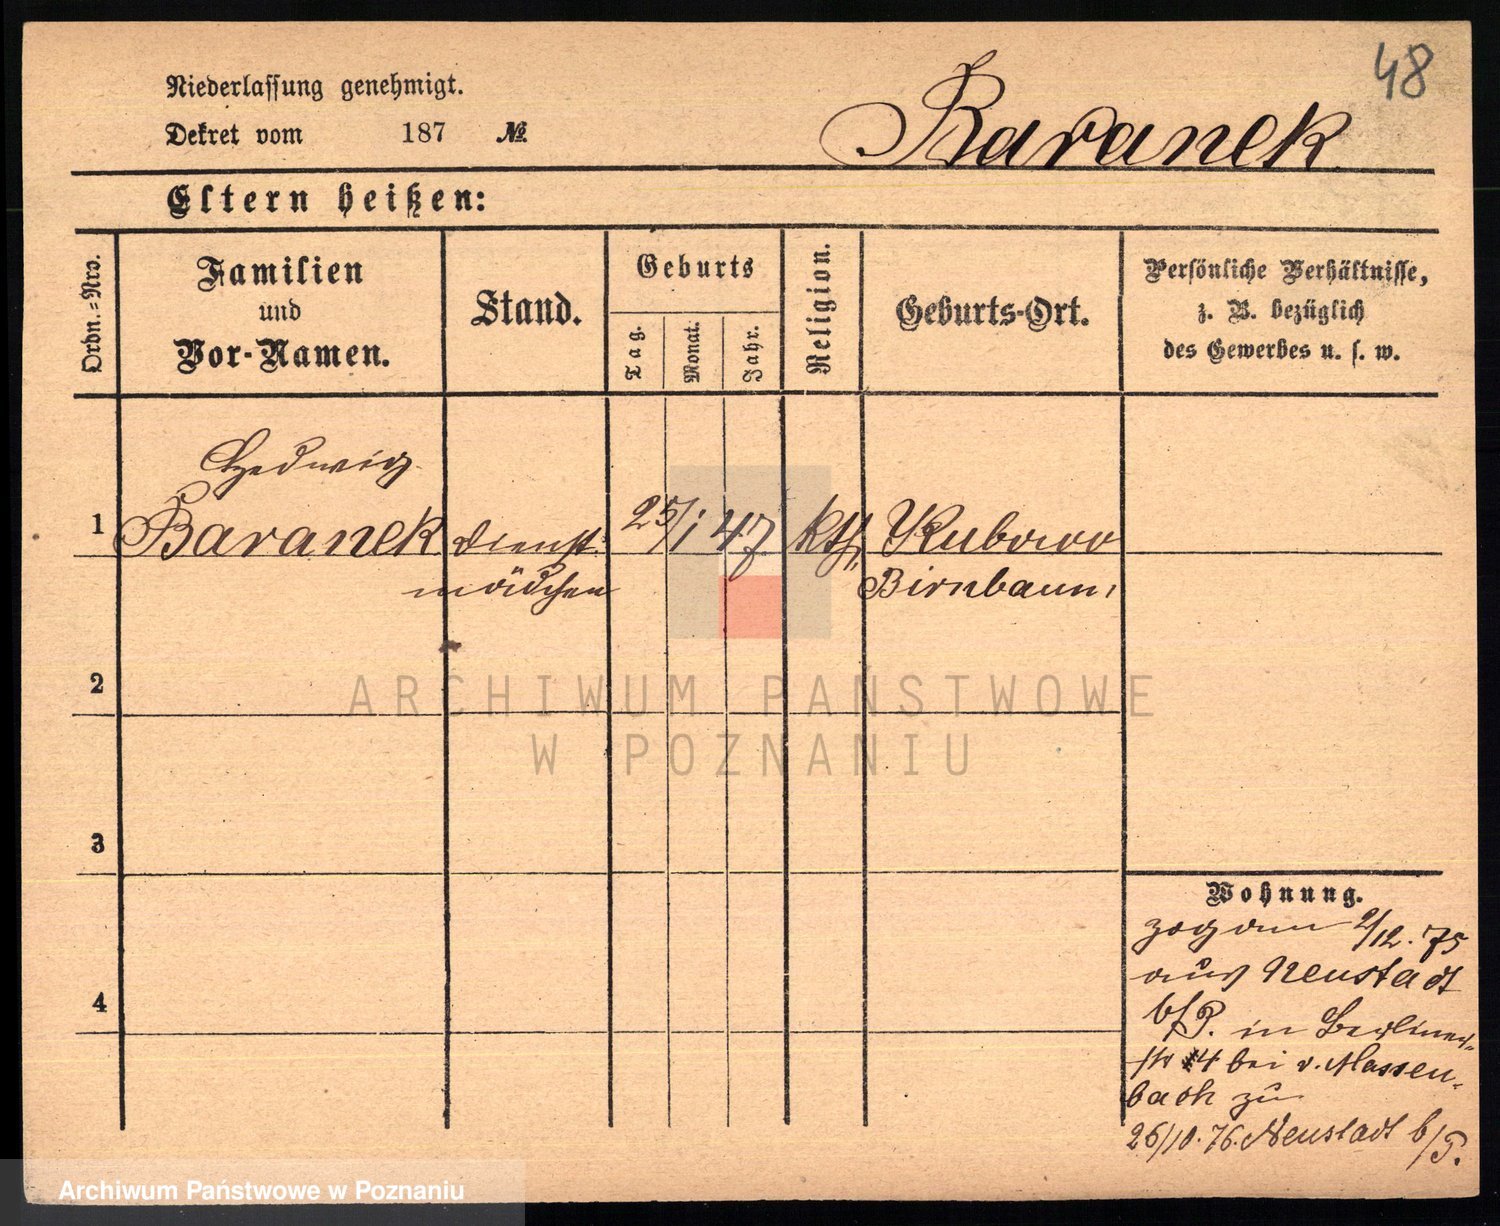 48
Niederlassung genehmigt.
Dekret vom 187 №
Baranek
Eltern heißen:
Ordn.=Nro.
Familien
und
Vor-Namen.
Stand.
Geburts
Tag.
Monat.
Jahr.
Religion.
Geburts-Ort.
Persönliche Verhältnisse,
z. B. bezüglich
des Gewerbes u. s. w.
Hedwig
1 Baranek Dienst- 25/1 47 kth. Kubowo
mädchen Birnbaum
2
3
4
Wohnung.
zog am 2/12. 75
aus Neustadt
b/P. in Berliner-
str 4 bei v. Massen-
bach zu
26/10. 76. Neustadt b/P.
ARCHIWUM PAŃSTWOWE
W POZNANIU
Archiwum Państwowe w Poznaniu